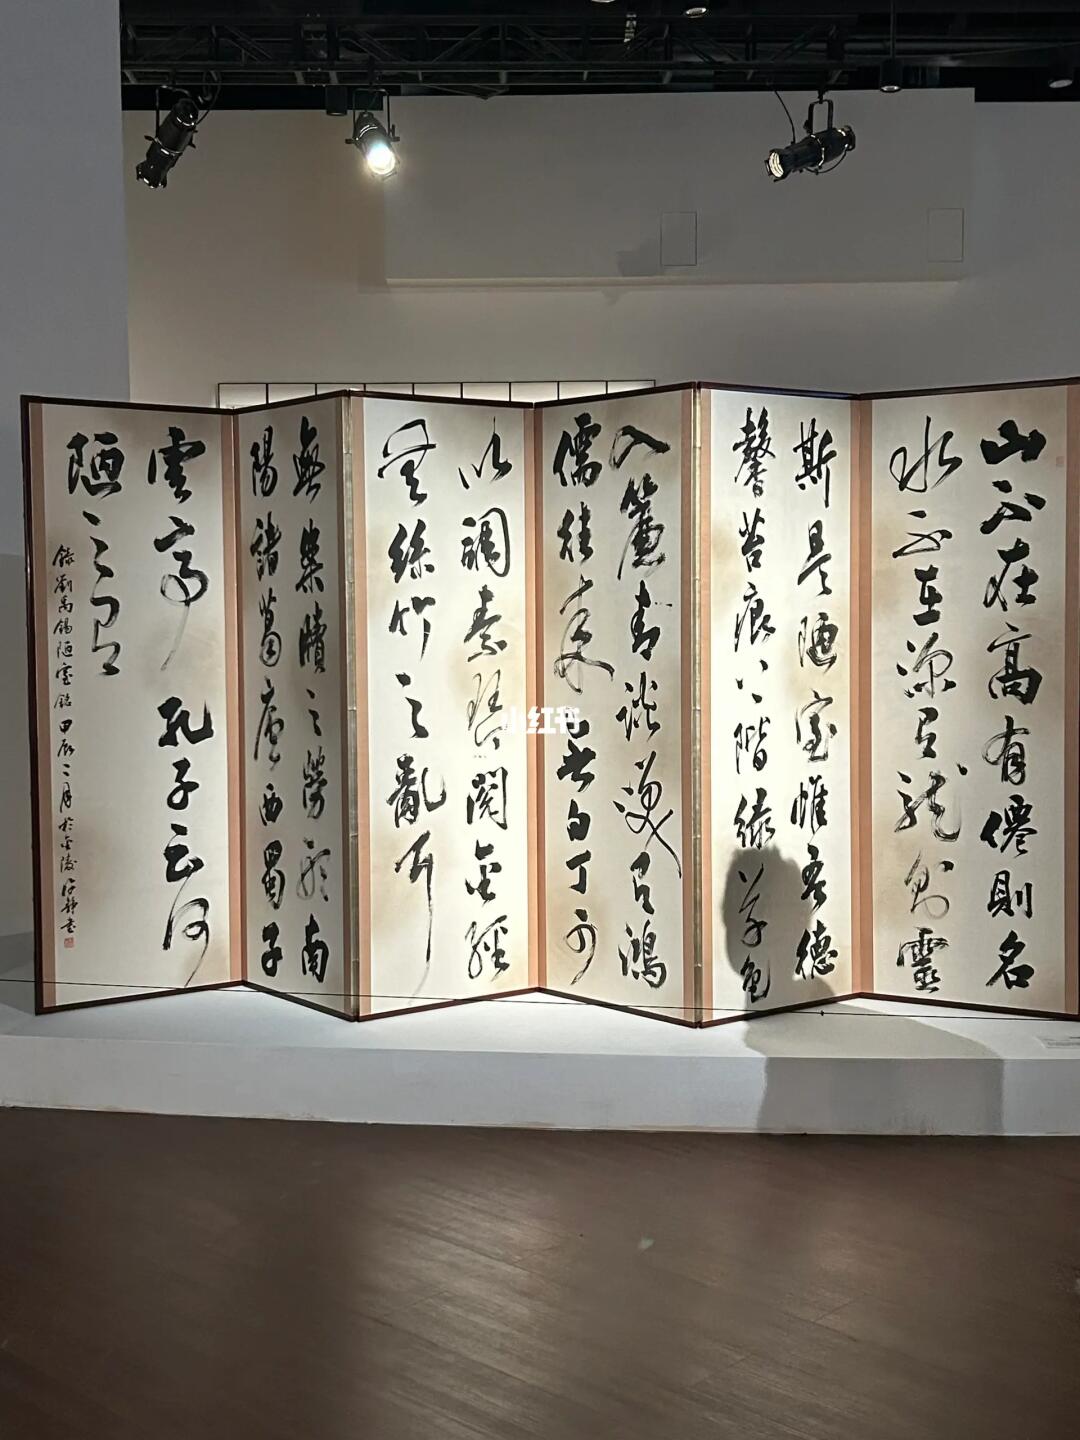 山不在高有僊則名
水不在深有龍則靈
斯是陋室惟吾德
馨苔痕上階綠草色
入簾青談笑有鴻
儒往來無白丁可
以調素琴閱金經
無絲竹之亂耳
無案牘之勞形南
陽諸葛廬西蜀子
雲亭孔子云何
陋之有
錄劉禹錫陋室銘甲辰二月於金陵靜書
小红书